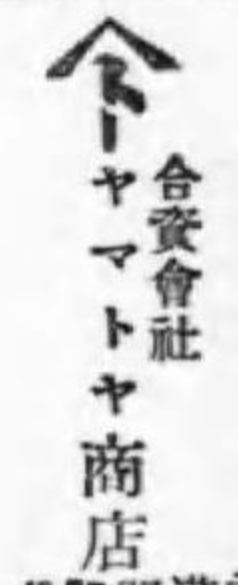 合資會社
ヤマトヤ商店